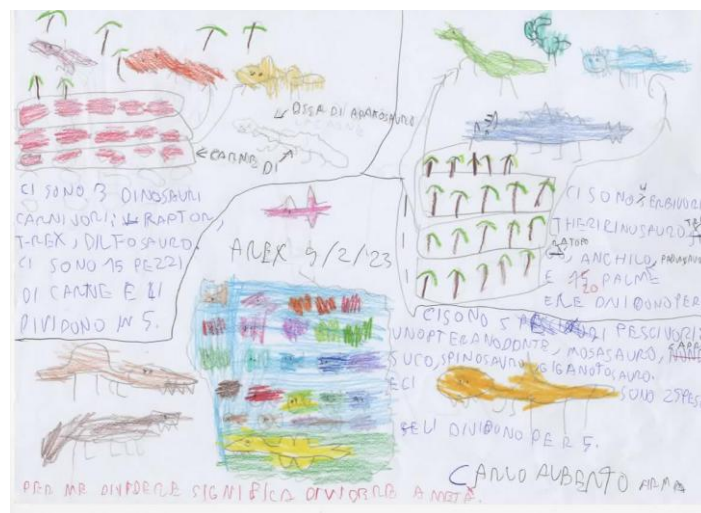 OSSA DI APATOSAURO
CARNE DI
CI SONO 3 DINOSAURI
CARNIVORI: RAPTOR
T-REX, DILFOSAURO.
CI SONO 15 PEZZI
DI CARNE E LI
DIVIDONO IN 5.
AREX 9/2/23
CI SONO 4 ERBIVORI
THERIRINOSAURO,
ANCHILO,
E 20 PALME
E LE DIVIDONO PER
CI SONO 5 PESCIVORI:
UNO PTERANODONTE, MOSASAURO,
SUCO, SPINOSAURO, GIGANOTOSAURO.
ECI SONO 25 PESCI
SELI DIVIDONO PER 5.
CARLO ALBERTO ARMA
PER ME DIVIDERE SIGNIFICA DIVIDERE A METÀ.